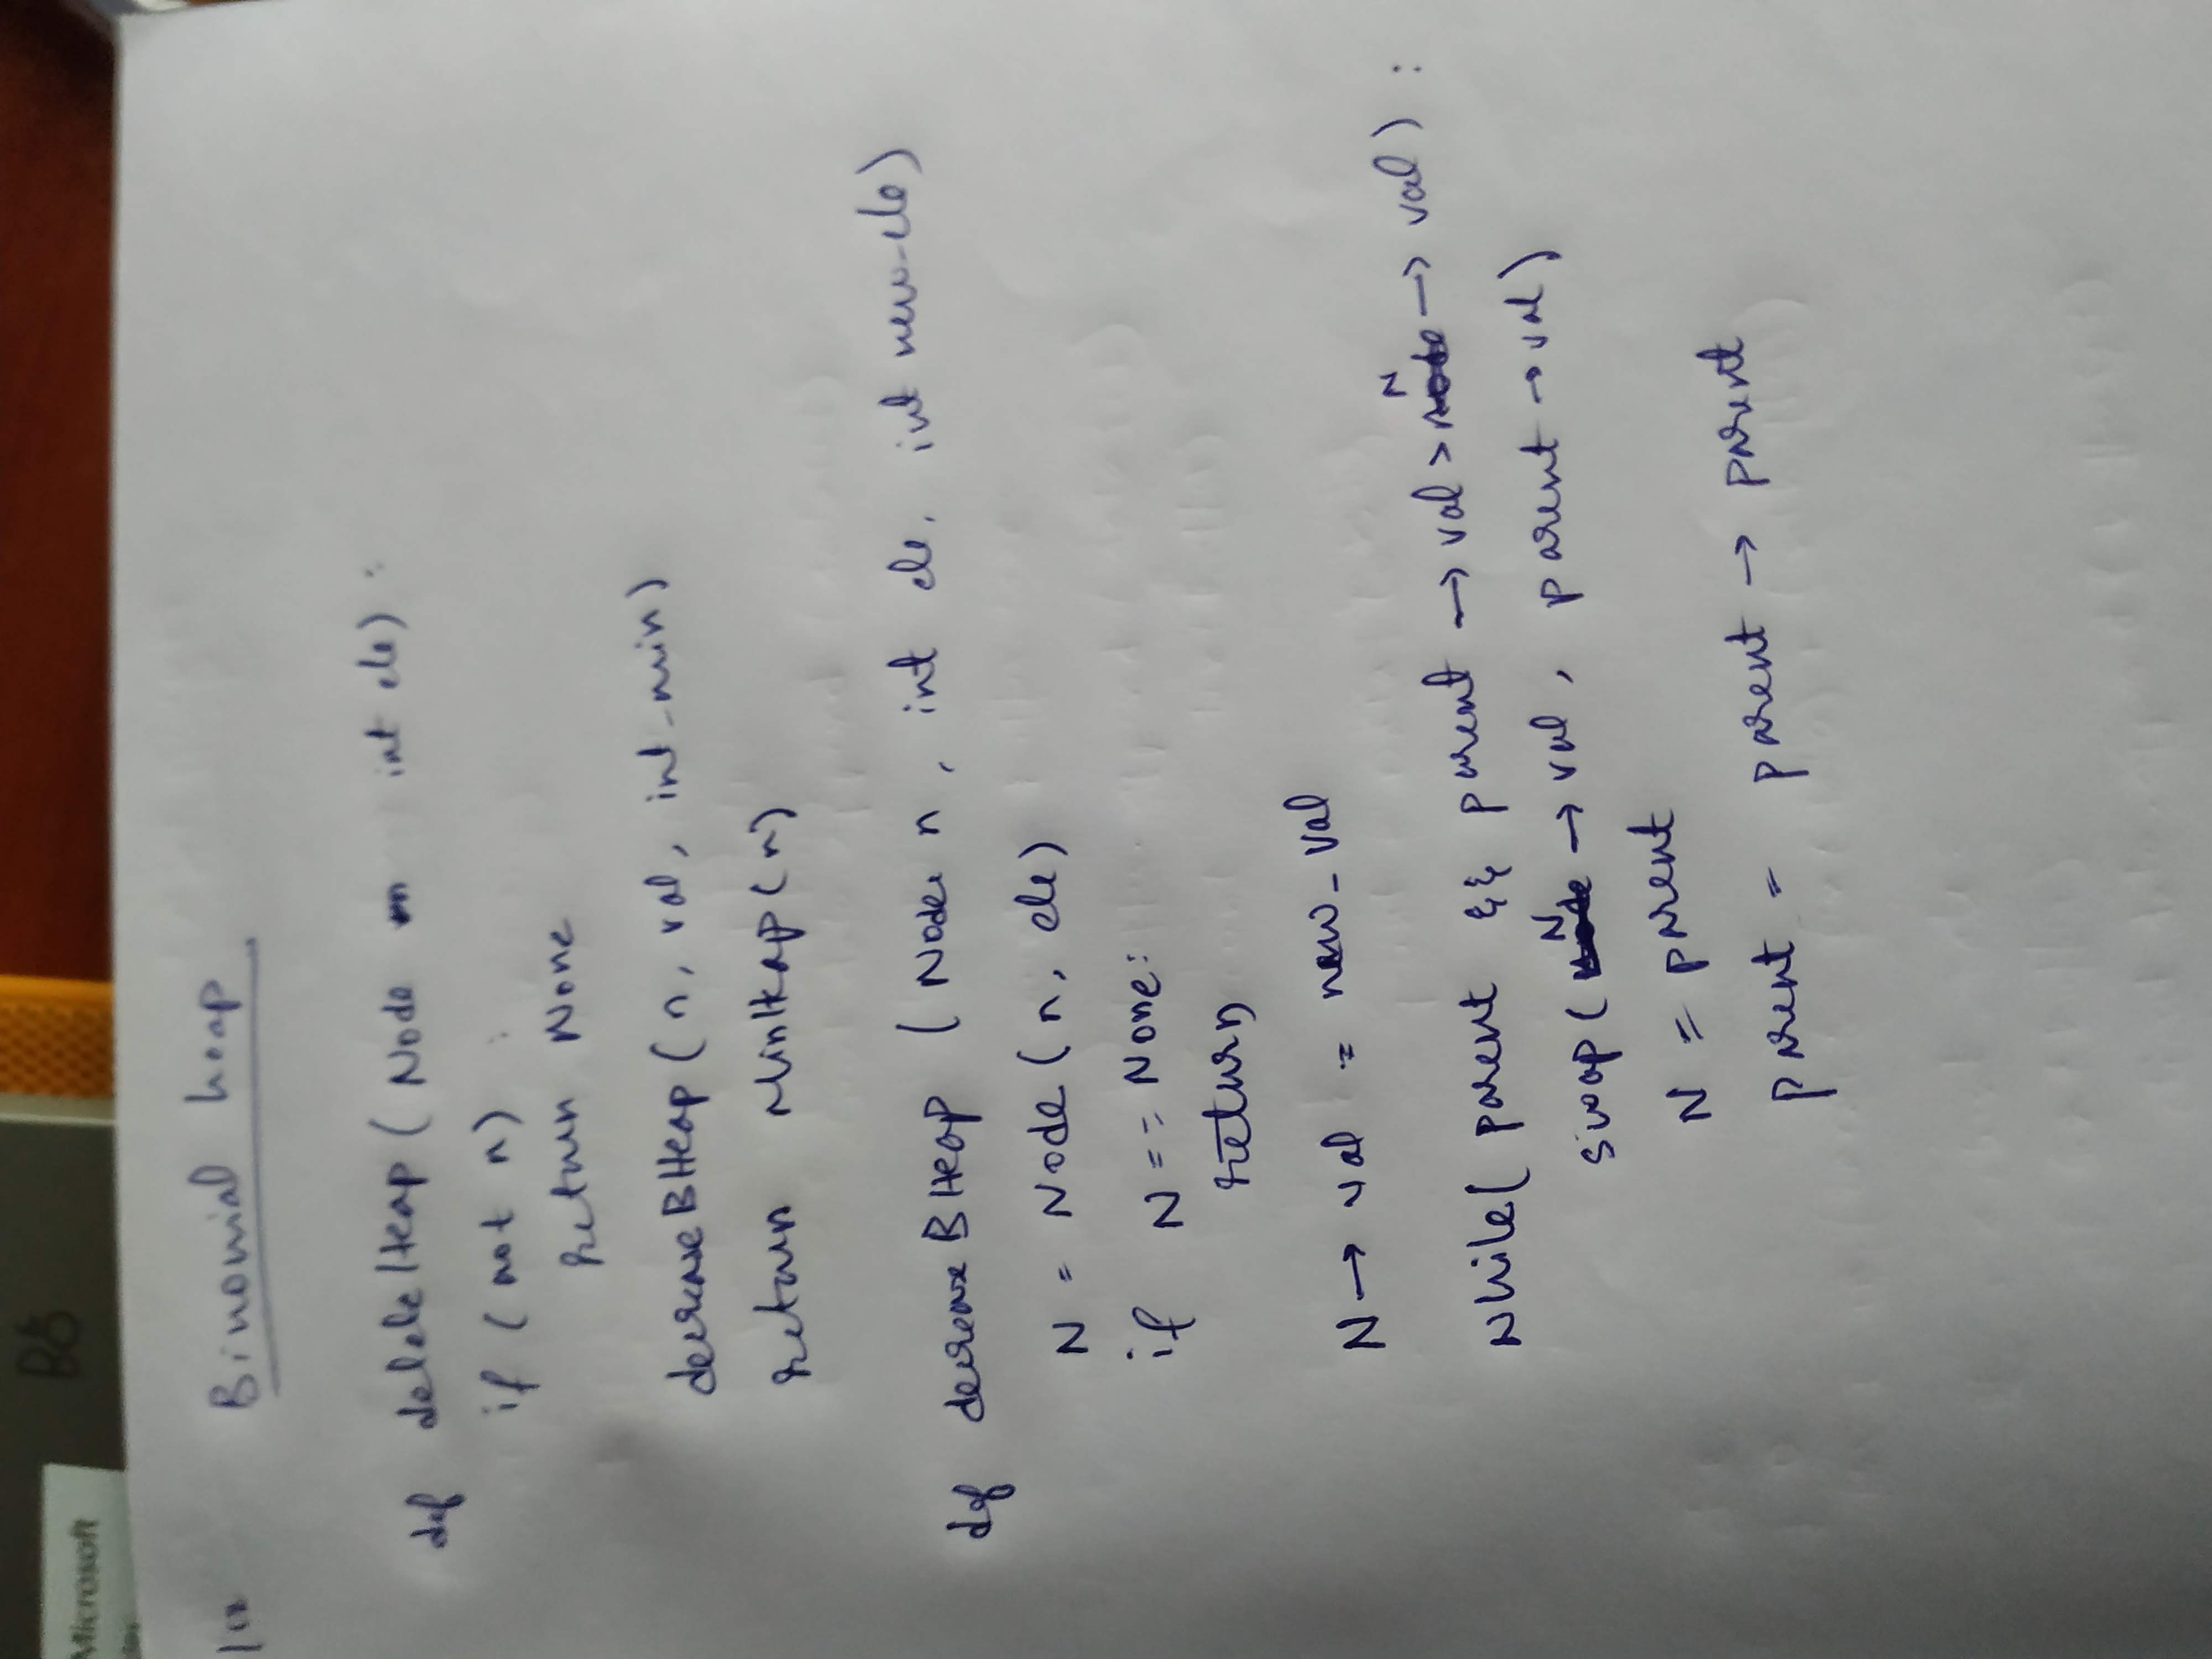 Binomial heap
def deleteHeap ( Node n int ele) :
if ( not n) :
return None
decreaseBHeap ( n, val, int_min)
return MinHeap (n)
def decreaseBHeap ( Node n , int ele, int new_ele)
N = Node ( n, ele)
if N == None:
return
N → val = new_val
while( parent && parent → val > N → val ) :
swap ( N → val , parent → val )
N = parent
parent = parent → parent
Microsoft